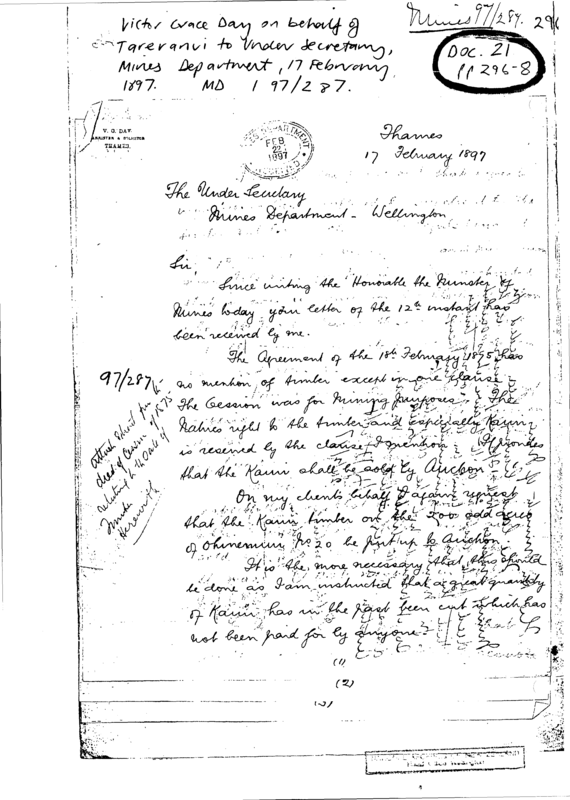 Mines 97/287. 296
Victor Grace Day on behalf of
Tareranui to Under Secretary,
Mines Department, 17 February
1897. MD 1 97/287.
DOC. 21
pp 296-8
V. G. DAY.
BARRISTER & SOLICITOR
THAMES.
MINES DEPARTMENT
FEB
22
1897
RECEIVED
Thames
17 February 1897
The Under Secretary
Mines Department - Wellington
Sir,
Since writing the Honorable the Minister of
Mines today your letter of the 12th instant has
been received by me.
The Agreement of the 18th February 1875 has
no mention of timber except in one clause
The Cession was for Mining purposes - The
Natives right to the timber and especially Kauri
is reserved by the clause I mention. It provides
that the Kauri shall be sold by Auction -
On my clients behalf I again request
that the Kauri timber on the 200 odd acres
of Ohinemuri No 20 be put up to Auction.
It is the more necessary that this should
be done as I am instructed that a great quantity
of Kauri has in the past been cut which has
not been paid for by anyone.
97/287
Attach Extract from
deed of Cession of 1875
relating to the Sale of
Timber
Herewith
(1)
(2)
(3)